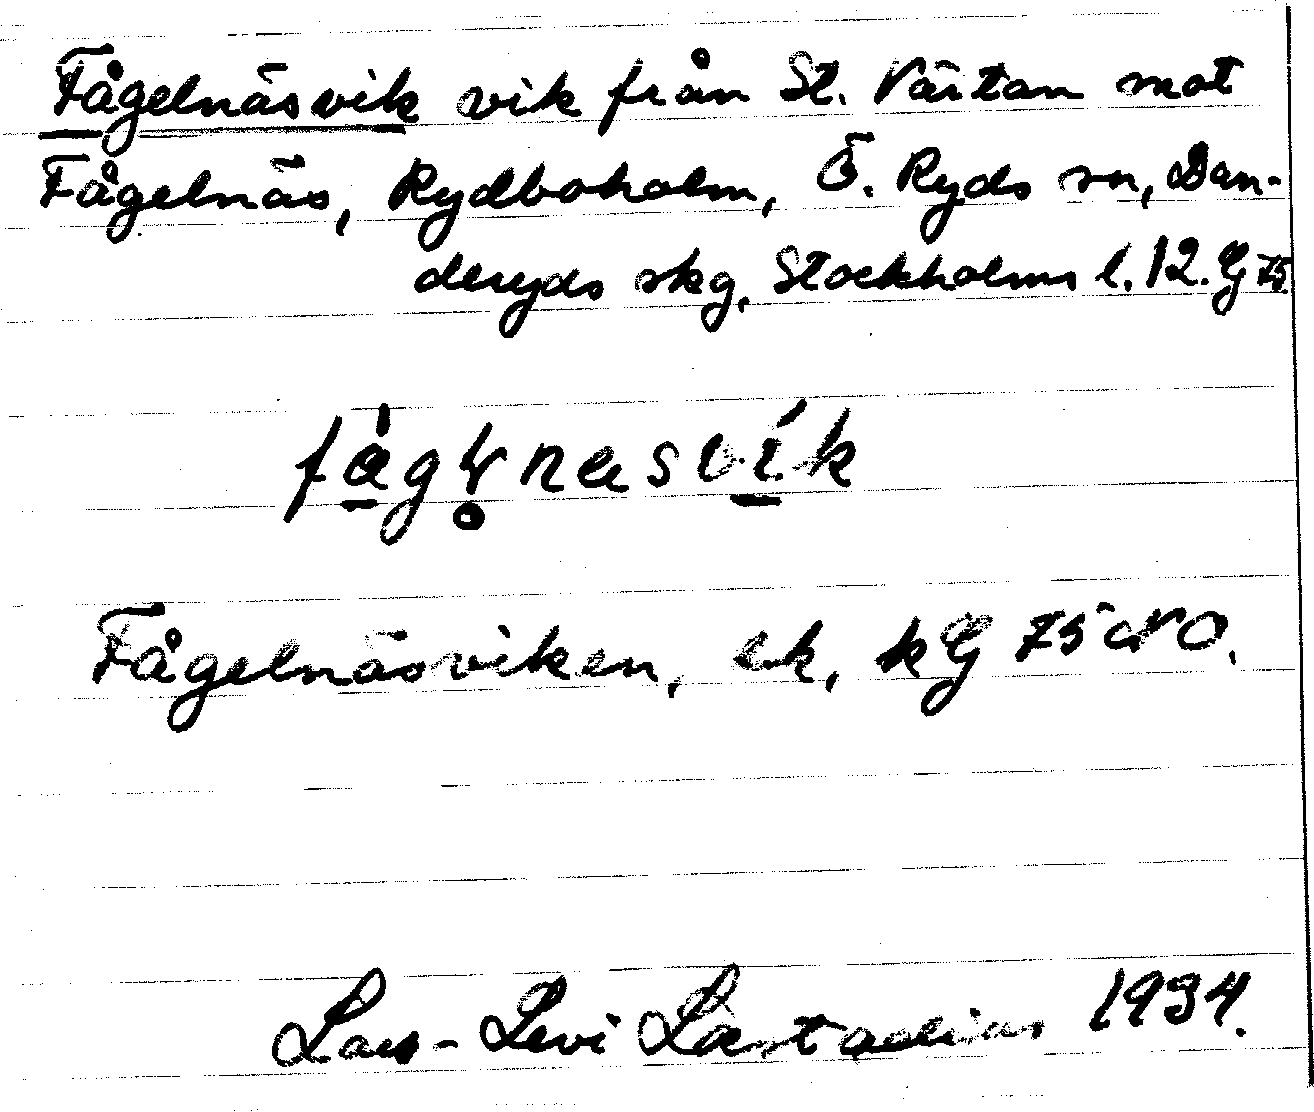 Fågelnäsvik vik från St. Värtan mot
Fågelnäs, Rydboholm, Ö. Ryds sn, Dan-
deryds skg, Stockholms l. 12. G 75.
Fågelnäsviken, ek, kG 75 NO.
Lars-Levi Læstadius 1934.